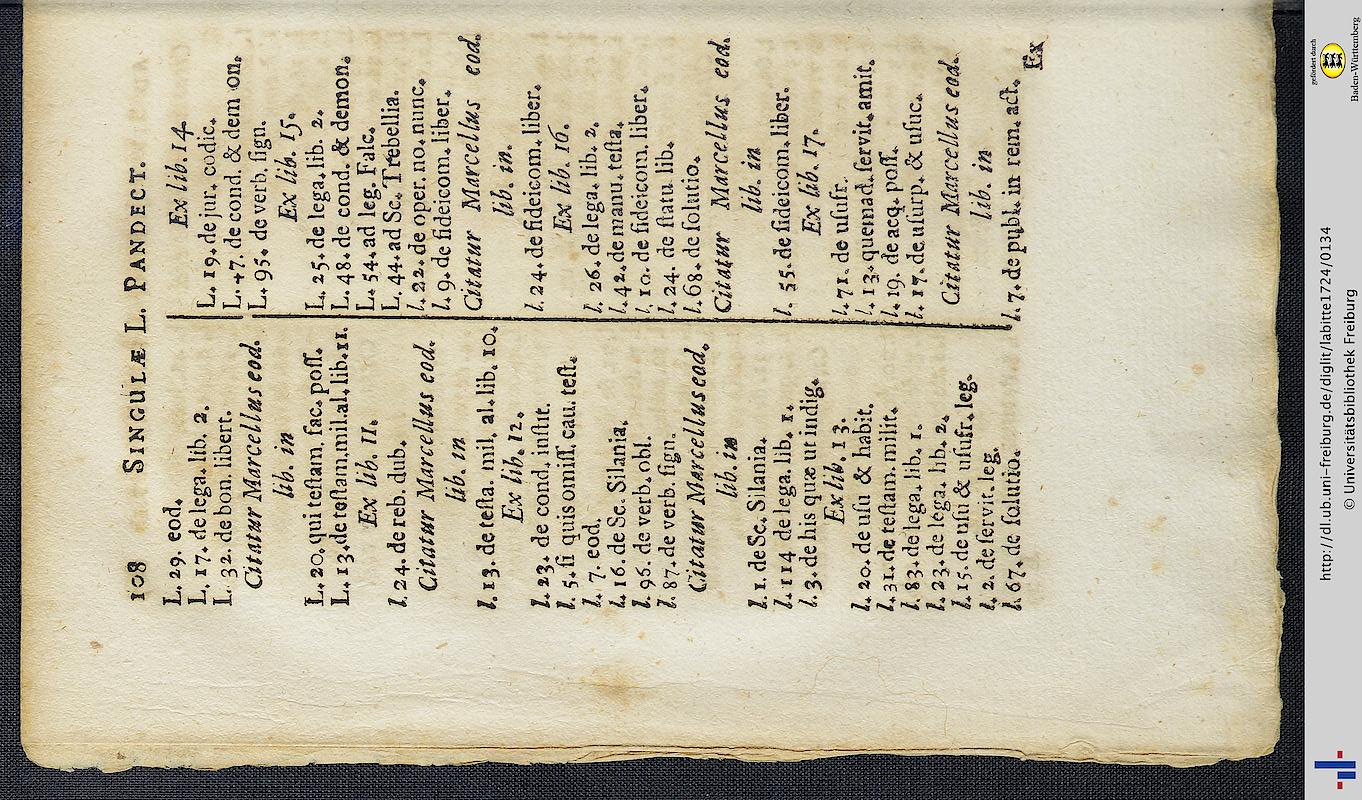 108 SINGULÆ L. PANDECT.
L. 29. eod.
L. 17. de lega. lib. 2.
L. 32. de bon. libert.
Citatur Marcellus eod.
lib. in
L. 20. qui testam. fac. poss.
L. 13. de testam. mil. al. lib. 11.
Ex lib. 11.
l. 24. de reb. dub.
Citatur Marcellus eod.
lib. in
l. 13. de testa. mil. al. lib. 10.
Ex lib. 12.
l. 23. de cond. instit.
l. 5. si quis omiss. cau. test.
l. 7. eod.
l. 16. de Sc. Silania.
l. 96. de verb. obl.
l. 87. de verb. sign.
Citatur Marcellus eod.
lib. in
l. 1. de Sc. Silania.
l. 114 de lega. lib. 1.
l. 3. de his quæ ut indig.
Ex lib. 13.
l. 20. de usu & habit.
l. 31. de testam. milit.
l. 83. de lega. lib. 1.
l. 23. de lega. lib. 2.
l. 15. de usu & usufr. leg.
l. 2. de servit. leg.
l. 67. de solutio.
Ex lib. 14.
L. 19. de jur. codic.
L. 47. de cond. & demon.
L. 95. de verb. sign.
Ex lib. 15.
L. 25. de lega. lib. 2.
L. 48. de cond. & demon.
L. 54. ad leg. Falc.
L. 44. ad Sc. Trebellia.
l. 22. de oper. no. nunc.
l. 9. de fideicom. liber.
Citatur Marcellus eod.
lib. in.
l. 24. de fideicom. liber.
Ex lib. 16.
l. 26. de lega. lib. 2.
l. 42. de manu. testa.
l. 10. de fideicom. liber.
l. 24. de statu lib.
l. 68. de solutio.
Citatur Marcellus eod.
lib. in
l. 55. de fideicom. liber.
Ex lib. 17.
l. 71. de usufr.
l. 13. quemad. servit. amit.
l. 19. de acq. poss.
l. 17. de usurp. & usuc.
Citatur Marcellus eod.
lib. in
l. 7. de publ. in rem. act.
Ex
http://dl.ub.uni-freiburg.de/diglit/labitte1724/0134
© Universitätsbibliothek Freiburg
gefördert durch
Baden-Württemberg